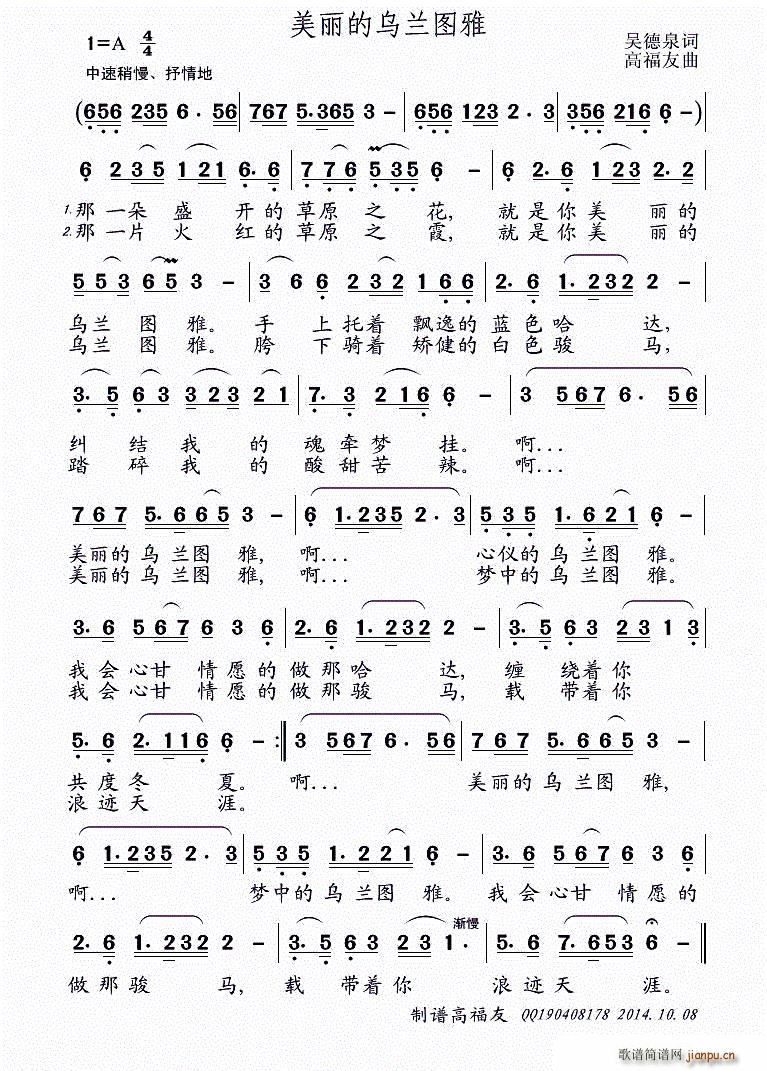 美丽的乌兰图雅
1=A 4/4
吴德泉词
高福友曲
中速稍慢、抒情地
(656 235 6· 56 | 767 5·365 3 - | 656 123 2·3 | 356 216 6 -)
6 235 121 6·6 | 776 535 6 - | 6 2·6 123 2·
1.那一朵盛开的草原之花，就是你美丽的
2.那一片火红的草原之霞，就是你美丽的
553 65 3 - | 366 232 166 | 2·6 1·232 2 - |
乌兰图雅。手上托着飘逸的蓝色哈达，
乌兰图雅。胯下骑着矫健的白色骏马，
3·5 63 323 21 | 7·3 216 6 - | 3 567 6·56 |
纠结我的魂牵梦挂。啊...
踏碎我的酸甜苦辣。啊...
767 5·665 3 - | 6 1·235 2·3 | 535 1·621 6 - |
美丽的乌兰图雅，啊... 心仪的乌兰图雅。
美丽的乌兰图雅，啊... 梦中的乌兰图雅。
3·6 567 6 3 6 | 2·6 1·232 2 - | 3·5 63 231 3 |
我会心甘情愿的做那哈达，缠绕着你
我会心甘情愿的做那骏马，载带着你
5·6 2·116 6 - :| 3 567 6·56 | 767 5·665 3 - |
共度冬夏。啊... 美丽的乌兰图雅，
浪迹天涯。
6 1·235 2·3 | 535 1·221 6 - | 3·6 567 6 3 6 |
啊... 梦中的乌兰图雅。我会心甘情愿的
渐慢
2·6 1·232 2 - | 3·5 63 23 1· | 5·6 7·653 6 - ||
做那骏马，载带着你浪迹天涯。
制谱高福友 QQ190408178 2014.10.08
歌谱简谱网 jianpu.cn